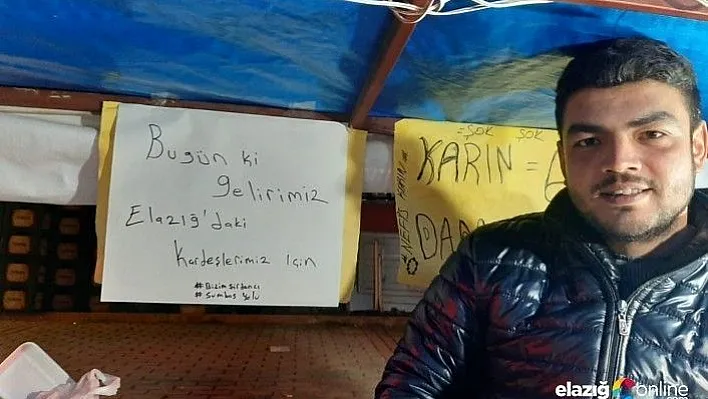 Bugün ki
gelirimiz
Elazığ'daki
Kardeşlerimiz için
#Bizimsirdancı
#Sumbas yolu
=ŞOK ŞOK
KARIN =
=NEFİS KARIN=
elazığ online